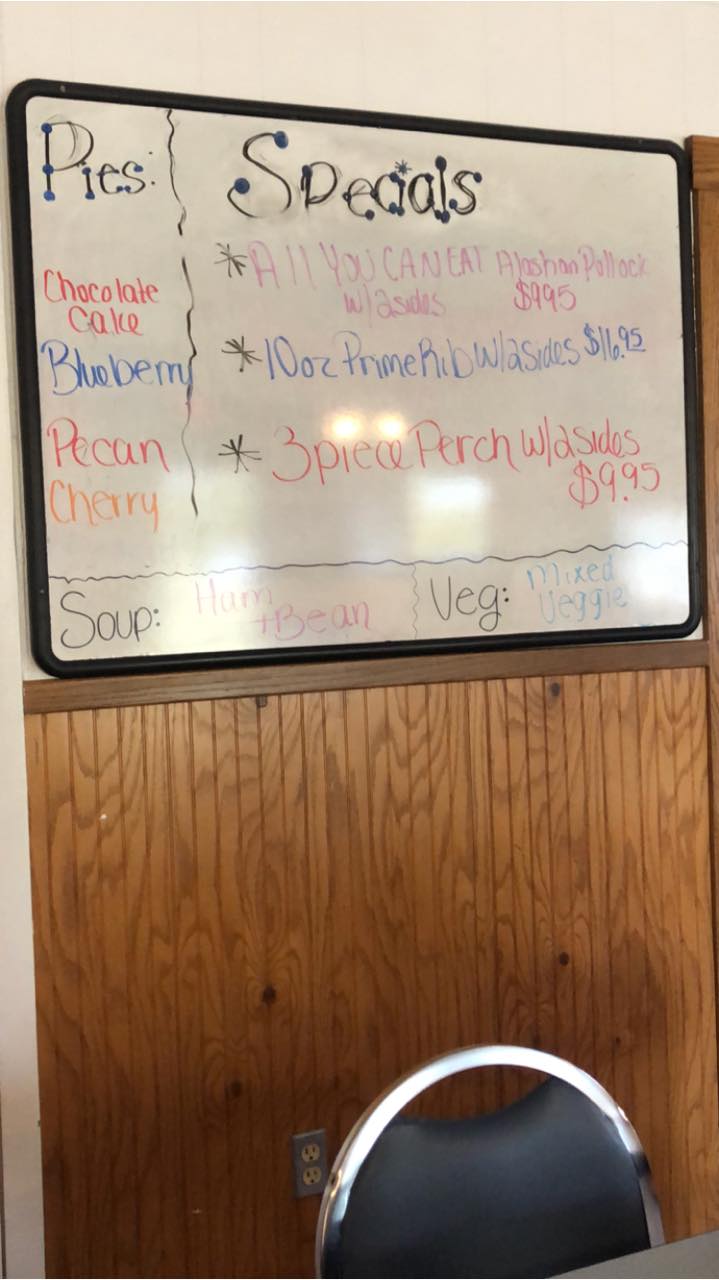 Pies:
Chocolate
Cake
Blueberry
Pecan
Cherry
Specials
* All YOU CAN EAT Alaskan Pollock
w/2sides $9.95
* 10oz Prime Rib w/2sides $16.95
* 3piece Perch w/2sides
$9.95
Soup: Ham
+Bean
Veg: Mixed
Veggie